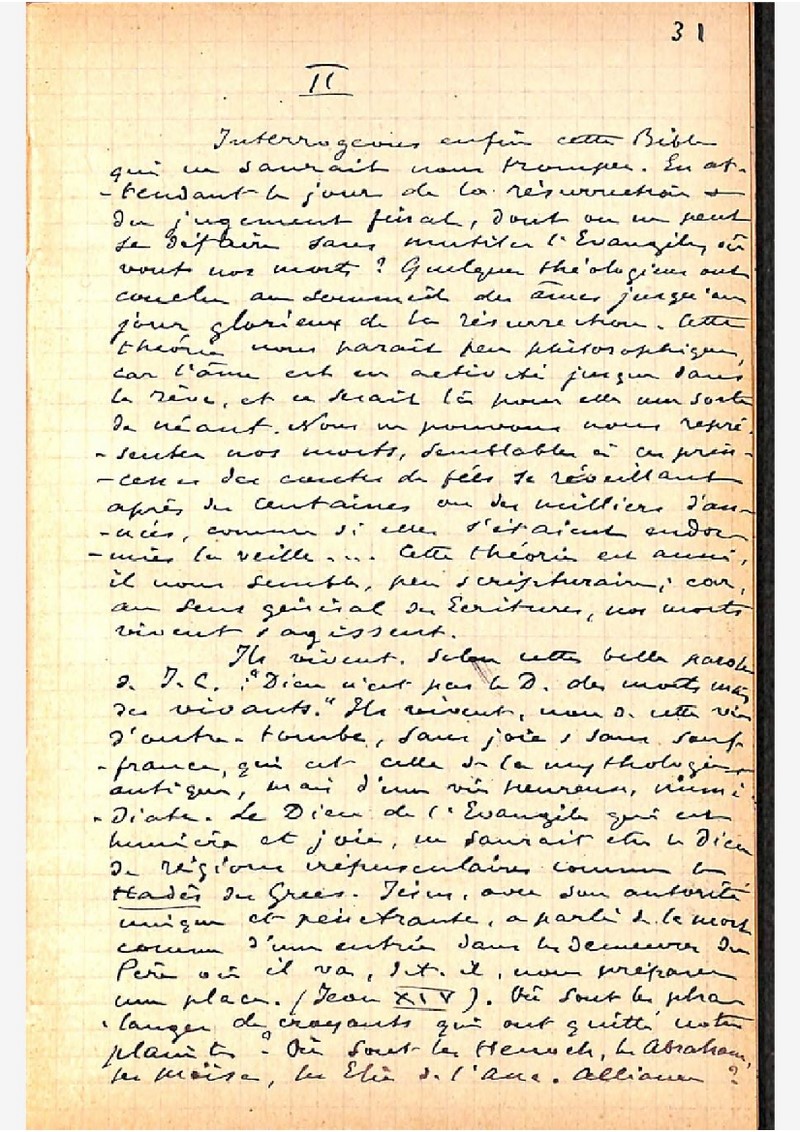 31
II
Interrogeons enfin cette Bible
qui ne saurait nous tromper. En at-
-tendant le jour de la résurrection &
du jugement final, dont on ne peut
se défaire sans mutiler l'Evangile, où
vont nos morts ? Quelques théologiens ont
conclu au sommeil des âmes jusqu'au
jour glorieux de la résurrection. Cette
théorie nous parait peu philosophique,
car l'âme est en activité jusque dans
le rêve, et ce serait là pour elle une sorte
de néant. Nous ne pouvons nous repré-
-senter nos morts, semblables à ces prin-
-cesses des contes de fées se réveillant
après des centaines ou des milliers d'an-
-nées, comme si elles s'étaient endor-
-mies la veille .... Cette théorie est aussi,
il nous semble, peu scripturaire ; car,
au sens général des Ecritures, nos morts
vivent & agissent.
Ils vivent. Selon cette belle parole
de J. C. : "Dieu n'est pas le D. des morts mais
des vivants." Ils vivent, non de cette vie
d'outre-tombe, sans joie & sans souf-
-france, qui est celle de la mythologie
antique, mais d'une vie heureuse, immé-
-diate. Le Dieu de l'Evangile qui est
lumière et joie, ne saurait être le Dieu
de régions crépusculaires comme le
Hadès des Grecs. Jésus, avec son autorité
unique et pénétrante, a parlé de la mort
comme d'une entrée dans les demeures du
Père où il va, dit-il, nous préparer
une place. (Jean XIV). Où sont les pha-
-langes de croyants qui ont quitté notre
planète ? Où sont les Henoch, les Abraham,
les Moïse, les Elie de l'Anc. Alliance ?